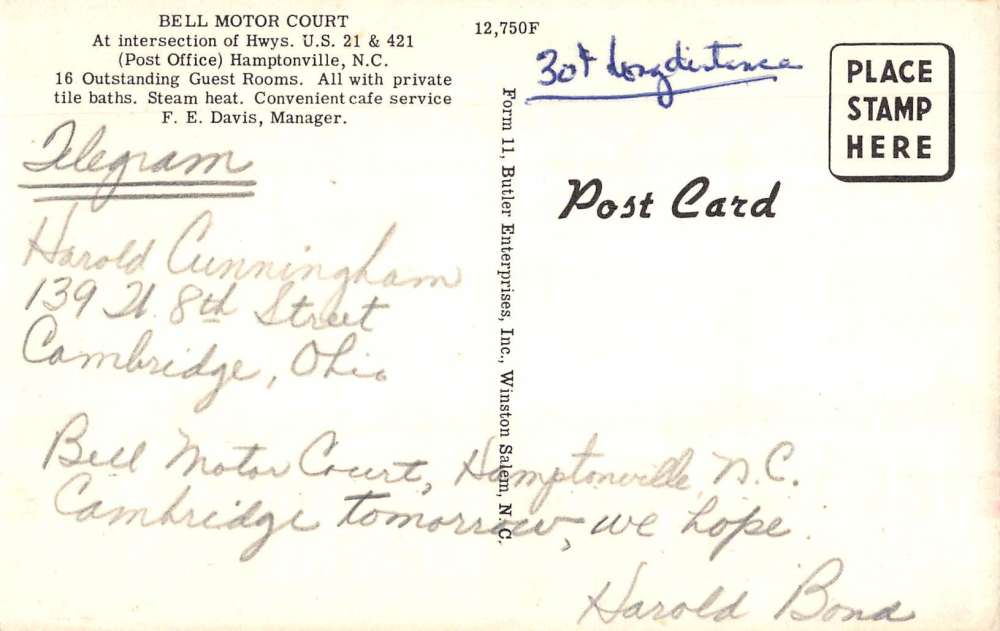 BELL MOTOR COURT
At intersection of Hwys. U.S. 21 & 421
(Post Office) Hamptonville, N.C.
16 Outstanding Guest Rooms. All with private
tile baths. Steam heat. Convenient cafe service
F. E. Davis, Manager.
12,750F
30¢ Long distance
PLACE
STAMP
HERE
Post Card
Form 11, Butler Enterprises, Inc., Winston Salem, N. C.
Telegram
Harold Cunningham
139 N. 8th Street
Cambridge, Ohio
Bell Motor Court, Hamptonville, N.C.
Cambridge tomorrow, we hope.
Harold Bond